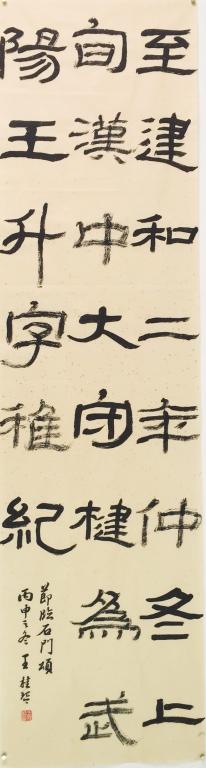 至建和二年仲冬上
旬漢中大守楗為武
陽王升字稚紀
節臨石門頌
丙申之冬王桂